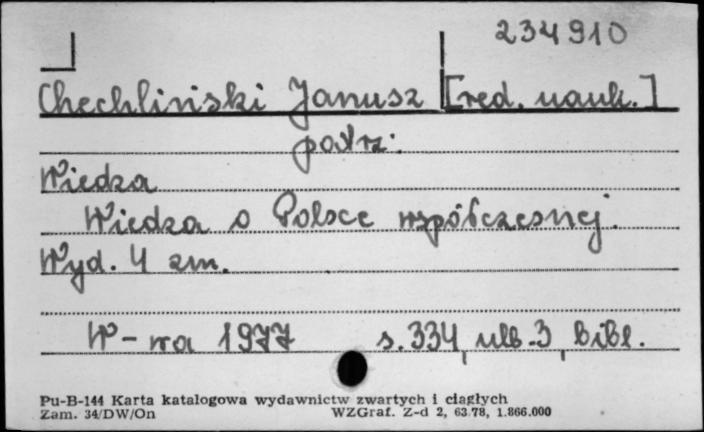 234910
Chechliński Janusz [red. nauk.]
patrz:
Wiedza
Wiedza o Polsce współczesnej.
Wyd. 4 zm.
W-wa 1977 s. 334, nlb. 3, Bibl.
Pu-B-144 Karta katalogowa wydawnictw zwartych i ciągłych
Zam. 34/DW/On WZGraf. Z-d 2, 63.78, 1.866.000